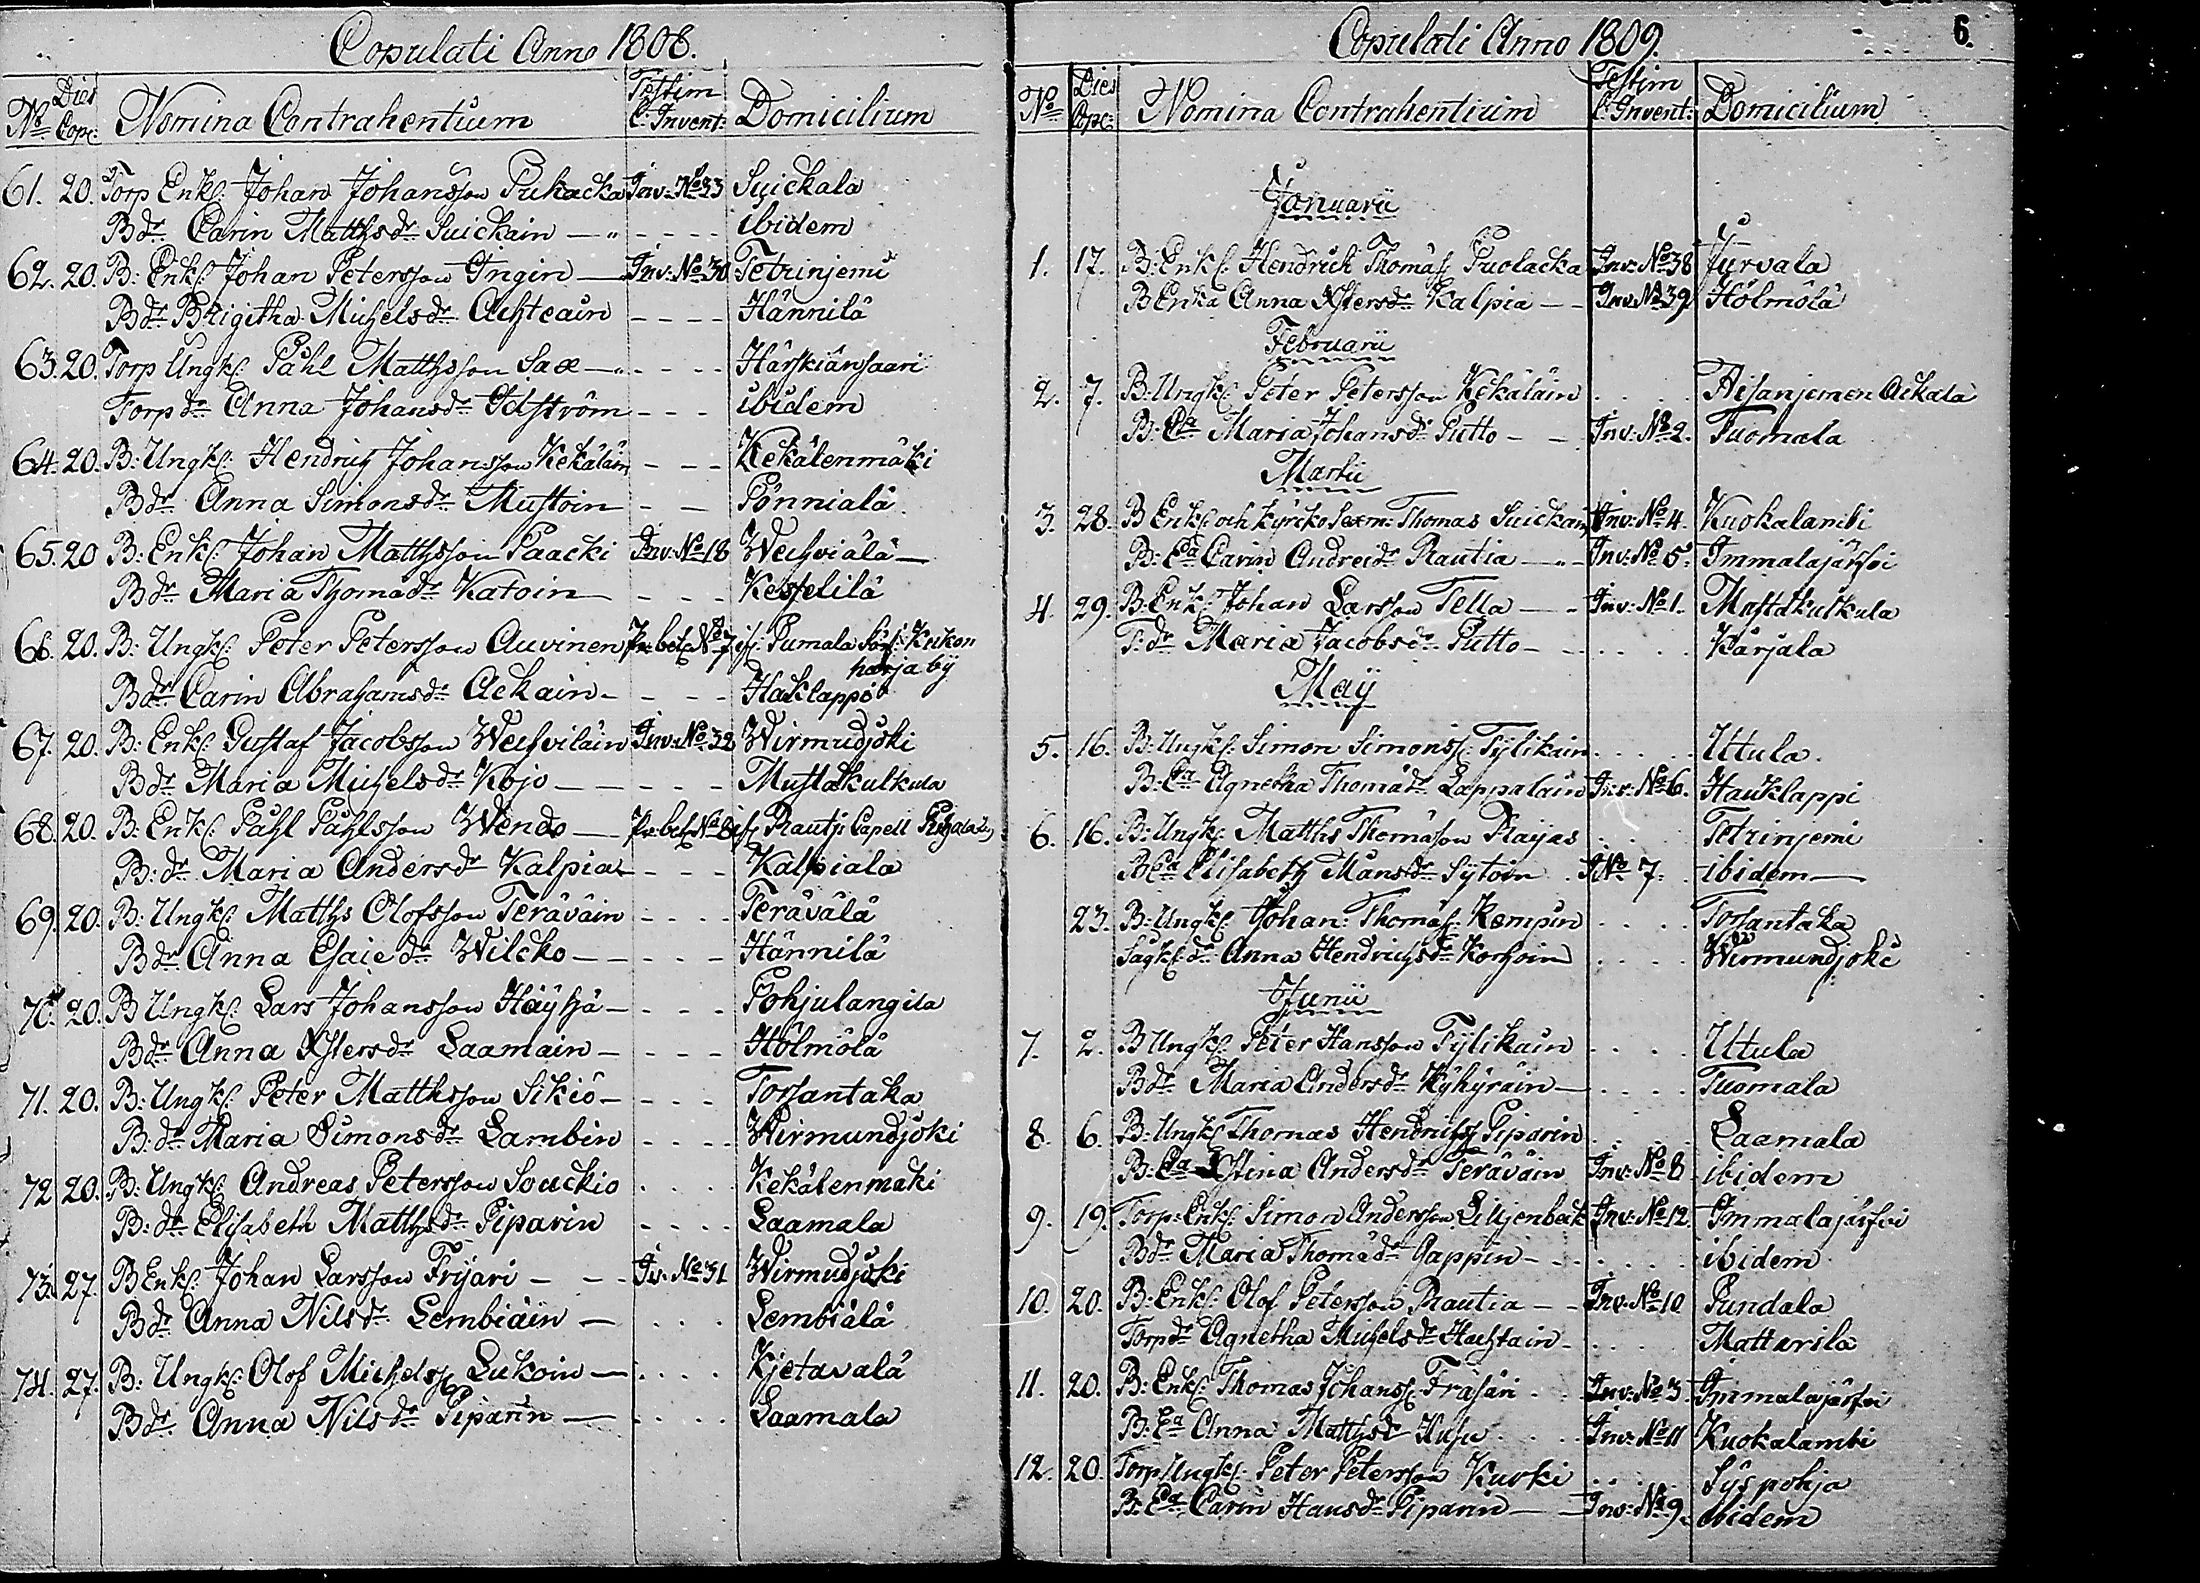 Copulati Anno 1808.
No Dies Cop: Nomina Contrahentium Testim C: Invent: Domicilium
61. 20. Torp Enkl: Johan Johansson Pukacka Inv: No 33 Suickala
Bdr Carin Matthsdr Suickain — " - - - - ibidem
62. 20. B: Enkl: Johan Petersson Ingin — Inv: No 30 Tetrinjemi
Bdr Brigitha Michelsdr Achtcain - - - - Hännilä
63. 20. Torp Ungkl: Påhl Matthsson Sax — - - - Härskiänsaari
Torp dr Anna Johansdr Idström - - - ibidem
64. 20. B: Ungkl: Hendrich Johansson Kekäläin - - - Kekälenmäki
Bdr Anna Simonsdr Mustoin - - Pönniälä
65. 20 B: Enkl: Johan Matthsson Paacki Inv: No 18 Weihviälä —
Bdr Maria Thomædr Katoin - - - Kesselilä
66. 20. B: Ungkl: Peter Petersson Auvinen Pr: bet: No 7 if: Pumala Sos: Kukon
harja by
Bdr Carin Abrahamsdr Ackain - - - - Haklappi
67. 20. B: Enkl: Gustaf Jacobsson Weihviläin Inv: No 32 Wirmudjoki
Bdr Maria Michelsdr Kojo — - - - - Mustatkulkula
68. 20. B: Enkl: Påhl Påhlsson Wendo — Pr: bet: No 8 if: Rautj: Capell
B: dr Maria Andersdr Kalpia - - - Kalpiala
69. 20. B: Ungkl: Matths Olofsson Teräväin - - - - Terävälä
Bdr Anna Esaiedr Wilcko - - - - Hännilä
70. 20. B Ungkl: Lars Johansson Häyhä - - - - Pohjulangila
Bdr Anna Xstersdr Laamain - - - - Hölmölä
71. 20. B: Ungkl: Peter Matthsson Sikiö - - - - Torsantaka
B: dr Maria Simonsdr Lambin - - - - Wirmundjoki
72 20. B: Ungkl: Andreas Petersson Souckio . . . . Kekälenmäki
B: dr Elisabeth Matthsdr Piparin - - - - Laamala
73. 27. B Enkl: Johan Larsson Frijari - - - Iv: No 31 Wirmudjoki
Bdr Anna Nilsdr Lembiäin — . . . . Lembiälä
74. 27. B: Ungkl: Olof Michelss: Lukoin — . . . . Kjetavalä
Bdr Anna Nilsdr Piparin — . . . . Laamala
Copulati Anno 1809. 6.
No Dies Cop: Nomina Contrahentium Testim C: Invent: Domicilium
Januarii
1. 17. B: Enkl: Hendrich Thomæs: Puolacka Inv: No 38 Jurvala
B Enka Anna Xstersdr Kalpia - - Inv: No 39 Hölmölä
Februarii
2. 7. B: Ungkl: Peter Petersson Kekäläin . . . . Ackala
B: Ea Maria Johansdr Putto - - Inv: No 2. Tuomala
Martii
3. 28. B Enkl: och Kyrcko Sexm: Thomas Suickain Inv: No 4. Kuokalambi
B: Ea Carin Andreædr Rautia — " - Inv: No 5. Immalajärfvi
4. 29. B: Enkl: Johan Larsson Tella — - Inv: No 1. Mustatkulkula
T: dr Maria Jacobsdr Putto - . . . . . Karjala
Maij
5. 16. B: Ungkl: Simon Simonss: Tylikain . . . . . Uttula.
B: Ea Agnetha Thomædr Lappalain Inv: No 6. Hauklappi
6. 16. B: Ungkl: Matths Thomæson Raijas . . . Tetrinjemi
B Ea Elisabeth Månsdr Sytoin . I No 7. ibidem —
23. B: Ungkl: Johan: Thomæs: Kempin . . . . Torsantaka
Sagkl: dr Anna Hendrichsdr Korhoin . . . . Wirmundjoki
Junii
7. 2. B Ungkl: Peter Hansson Tylikain . . . . Uttula
Bdr Maria Andersdr Kyhyräin — . . . . Tuomala
8. 6. B: Ungkl: Thomas Hendrichss: Piparin . . . . Laamala
B: Ea Xstina Andersdr Teräväin Inv: No 8 ibidem
9. 19. Torp: Enkl: Simon Andersson Liljenbäck Inv: No 12. Immalajärfvi
Bdr Maria Thomædr Pappin - . . . . . ibidem
10. 20. B: Enkl: Olof Petersson Rautia - - Inv: No 10 Pundala
Torp dr Agnetha Michelsdr Hachtain - . . . . Matturila
11. 20. B: Enkl: Thomas Johanss: Träsäri . . Inv: No 3 Immalajärfvi
B: Ea Anna Matthsdr Huhu . . . . Inv: No 11 Kuokalambi
12. 20. Torp Ungkl: Peter Petersson Kurki . . . Syspohja
B: Ea Carin Hansdr Piparin — - Inv: No 9. ibidem